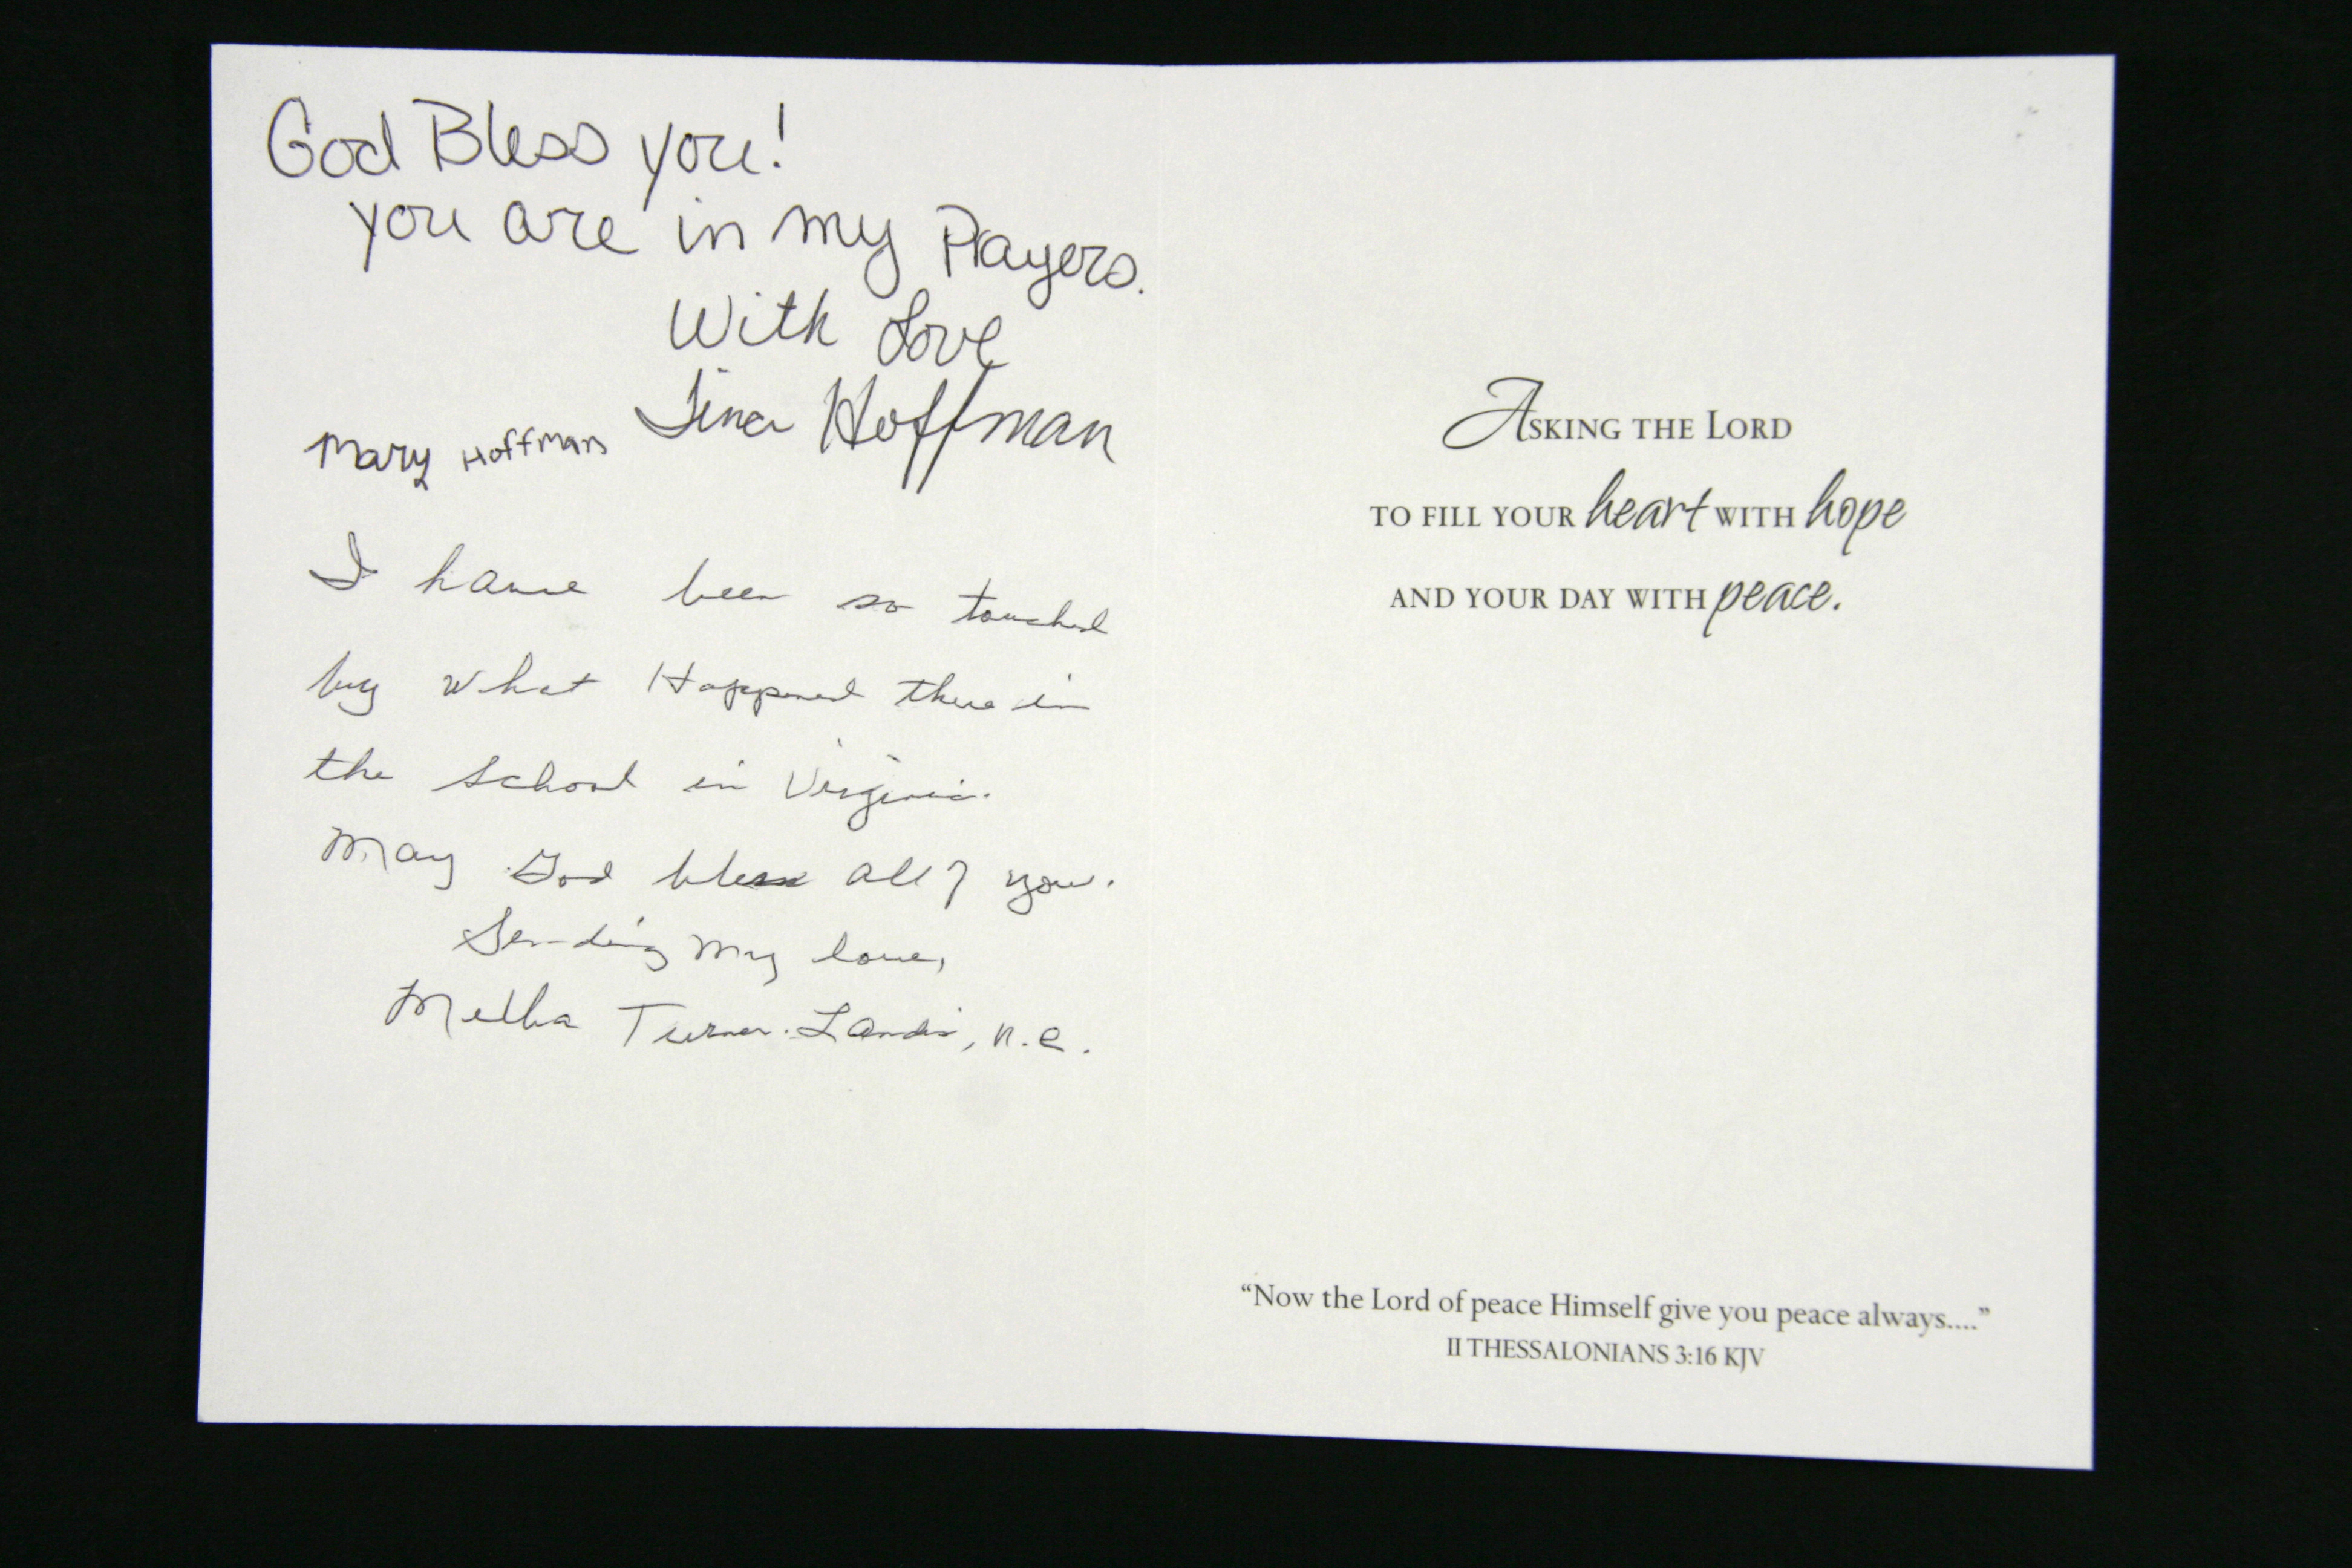 God Bless you!
you are in my Prayers.
With Love
Tina Hoffman
Mary Hoffman
I have been so touched
by what Happened there in
the school in Virginia.
May God bless all of you.
Sending my love,
Melba Turner. Landis, n.c.
ASKING THE LORD
TO FILL YOUR heart WITH hope
AND YOUR DAY WITH peace.
“Now the Lord of peace Himself give you peace always....”
II THESSALONIANS 3:16 KJV